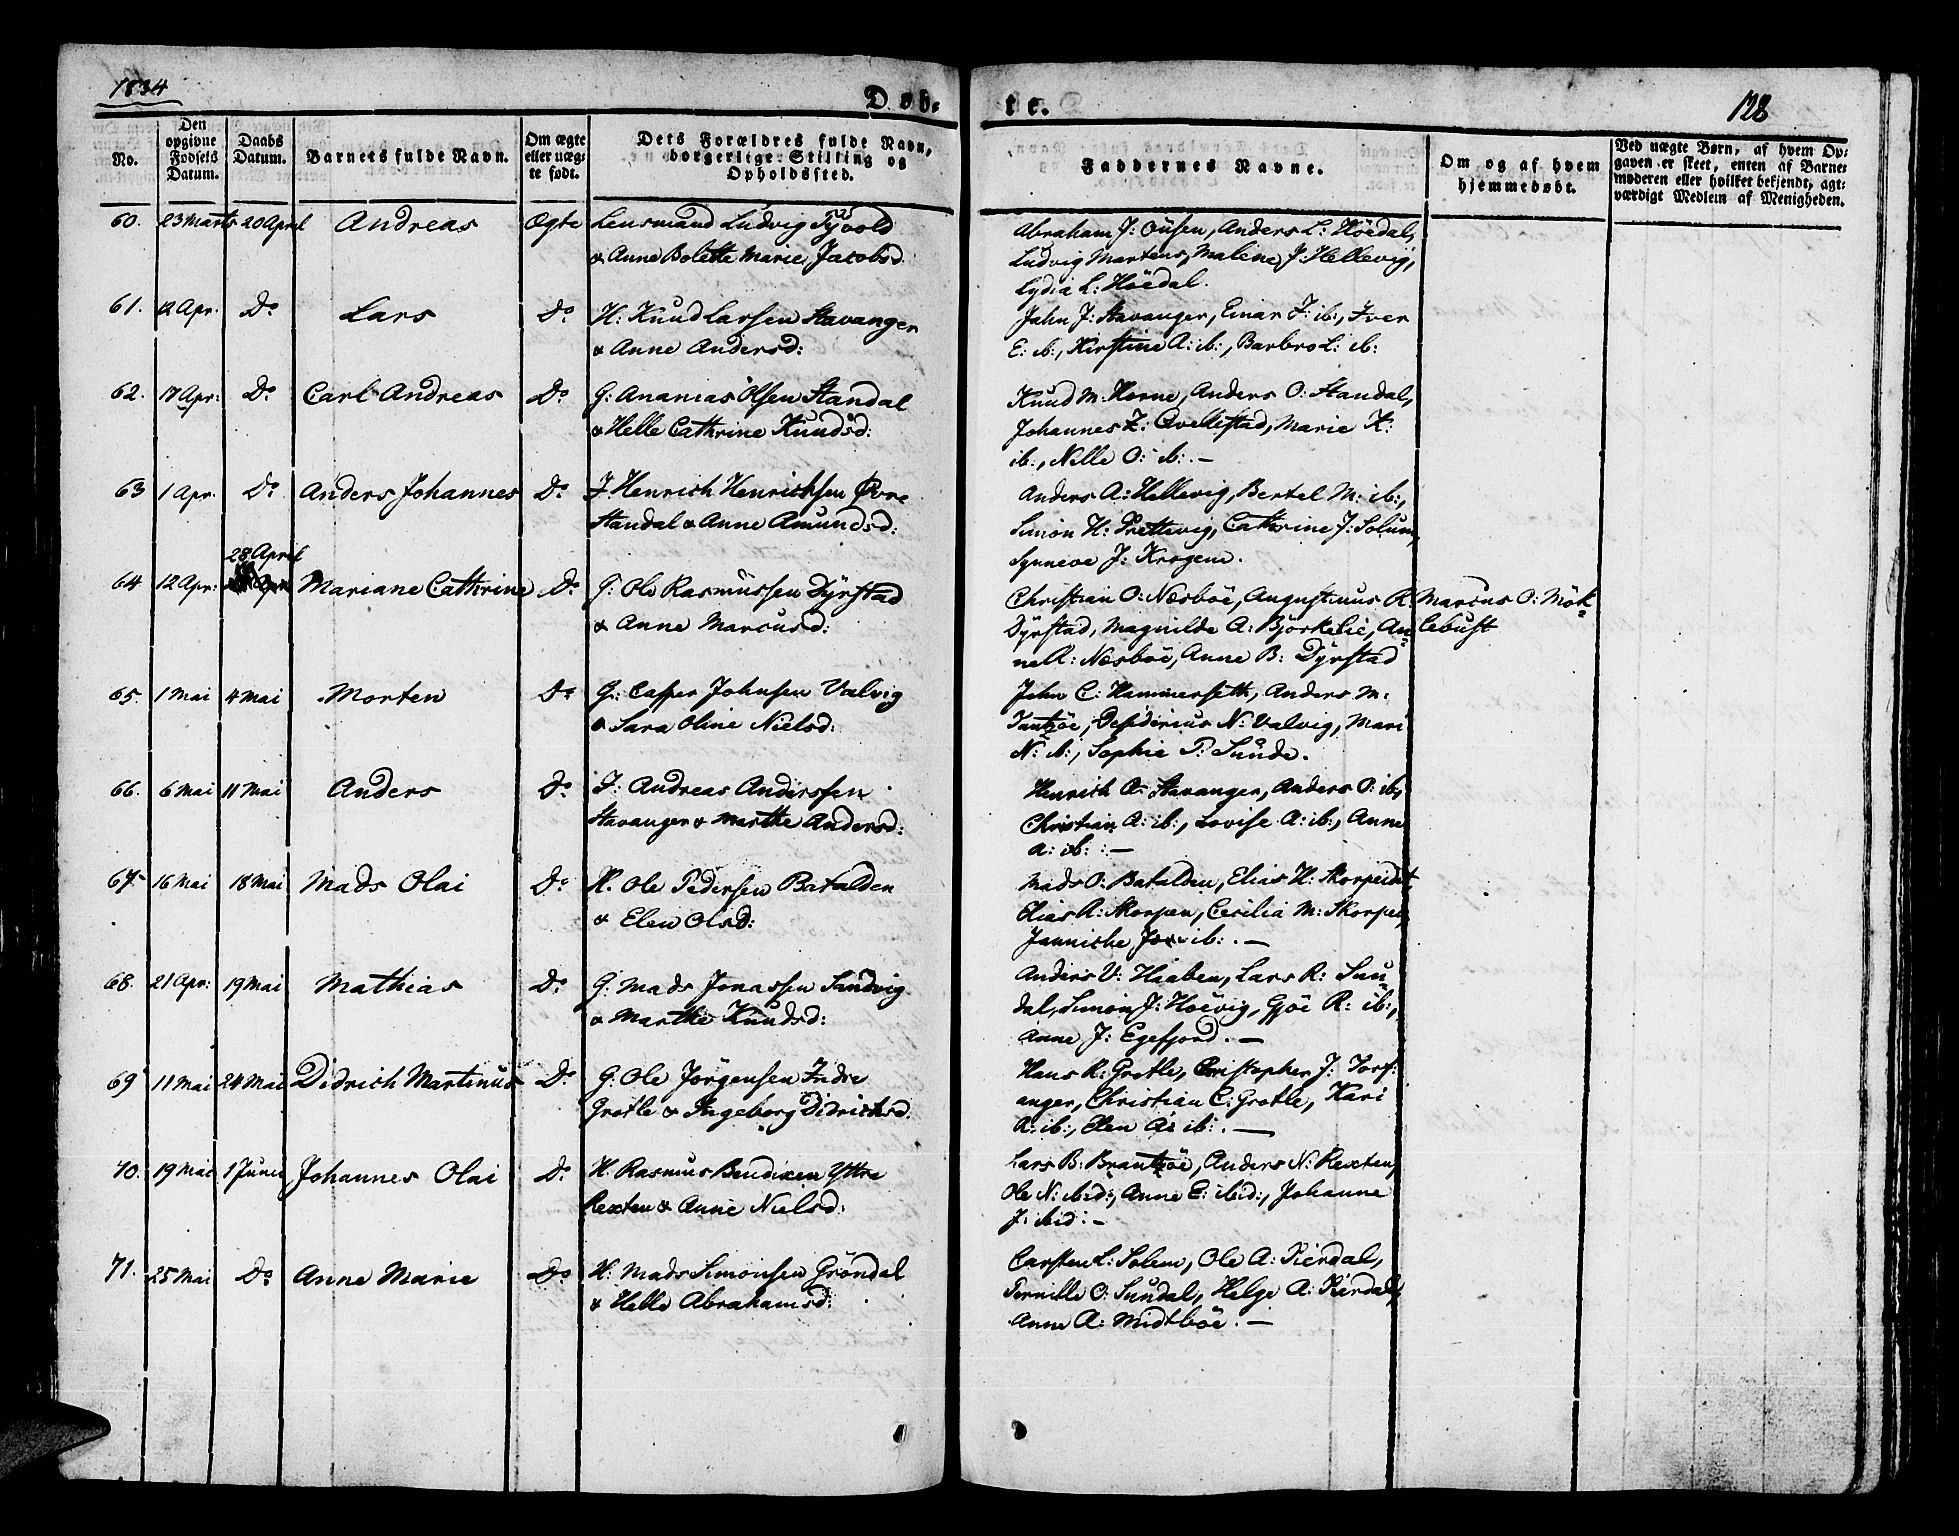 1834
Døb-
te.
128
No.
Den opgivne Fødsels Datum.
Daabs Datum.
Barnets fulde Navn.
Om ægte eller uæg- te født.
Dets Forældres fulde Navn, borgerlige Stilling og Opholdssted.
Faddernes Navne.
Om og af hvem hjemmedøbt.
Ved uægte Børn, af hvem Op-
gaven er skeet, enten af Barne-
moderen eller hvilket bekjendt, agt-
værdigt Medlem af Menigheden.
60. 23 Marts 20 April Andreas Ægte Lensmand Ludvig
& Anne Bolette Marie Jacobsd.
Abraham J: Ousen, Anders L: Höedal,
Ludvig Martens, Malene J: Hellevig,
Lydia L: Höedal.
61. 12 Apr: Do Lars Do H: Knud Larsen Stavanger
& Anne Andersd:
John J: Stavanger, Einar J: ib:, Iver
E: ib:, Kirstine A: ib:, Barbro L: ib:
62. 17 Apr: Do Carl Andreas Do G: Ananias Olsen Standal
& Helle Cathrine Knudsd:
Knud M: Horne, Anders O: Standal,
Johannes Z: Qvellestad, Marie K:
ib:, Nille O: ib: . —
63 1 Apr. Do Anders Johannes Do I Henrich Henrichsen Øvre
Standal & Anne Amundsd:
Anders A: Hellevig, Bertel M: ib:,
Simon H: Prettevig, Cathrine J: Solum,
Synneve J: Krogem.
28 April
64 12 Apr: Mariane Cathrine Do G: Ole Rasmussen Dyrstad
& Anne Marcusd:
Christian O: Næsböe, Augustinus R:
Dyrstad, Magnilde A: Björkelie, An-
ne A: Næsböe, Anne B: Dyrstad
Marcus O: Mök-
lebust
65. 1 Mai 4 Mai Morten Do G: Casper Johnsen Valvig
& Sara Oline Nielsd:
John C: Hammerseth, Anders M:
Desiderius N: Valvig, Mari
N: ib:, Sophie P: Sunde.
66. 6 Mai 11 Mai Anders Do I: Andreas Anderssen
Stavanger & Marthe Andersd:
Henrich A: Stavanger, Anders O: ib:,
Christian A: ib:, Lovise A: ib:, Anne
A: ib: : —
67. 16 Mai 18 Mai Mads Olai Do H. Ole Pedersen Batalden
& Elen Olsd:
Mads O: Batalden, Elias H: Skorpeidet,
Elias A: Skorpen, Cecilia M: Skorpen,
Jannicke J: ib: . —
68. 21 Apr: 19 Mai Mathias Do G: Mads Jonassen Sandvig
& Marthe Knudsd:
Anders V: Haaben, Lars R: Sun-
dal, Simon J: Hoevig, Gjöe R: ib:,
Anne J: Egefjord . —
69 11 Mai 24 Mai Didrich Martinus Do G: Ole Jörgensen Indre
Grotle & Ingeborg Didrichsd:
Hans R: Grotle, Christopher J: Torf-
anger, Christian C: Grotle, Kari
A: ib:, Elen A: ib: . —
70. 19 Mai 1 Juni Johannes Olai Do H. Rasmus Bendixen Yttre
Rexten & Anne Nielsd:
Lars B: Brantzöe, Anders N: Rexten,
Ole N: ibid:, Anne E: ibid:, Johanne
J: ibid: —
71. 25 Mai Do Anne Marie Do H: Mads Simonsen Gröndal
& Helle Abrahamsd:
Carsten L: Solem, Ole A: Rierdal,
Pernille O: Sundal, Helge A: Rierdal,
Anne A: Midtböe . —